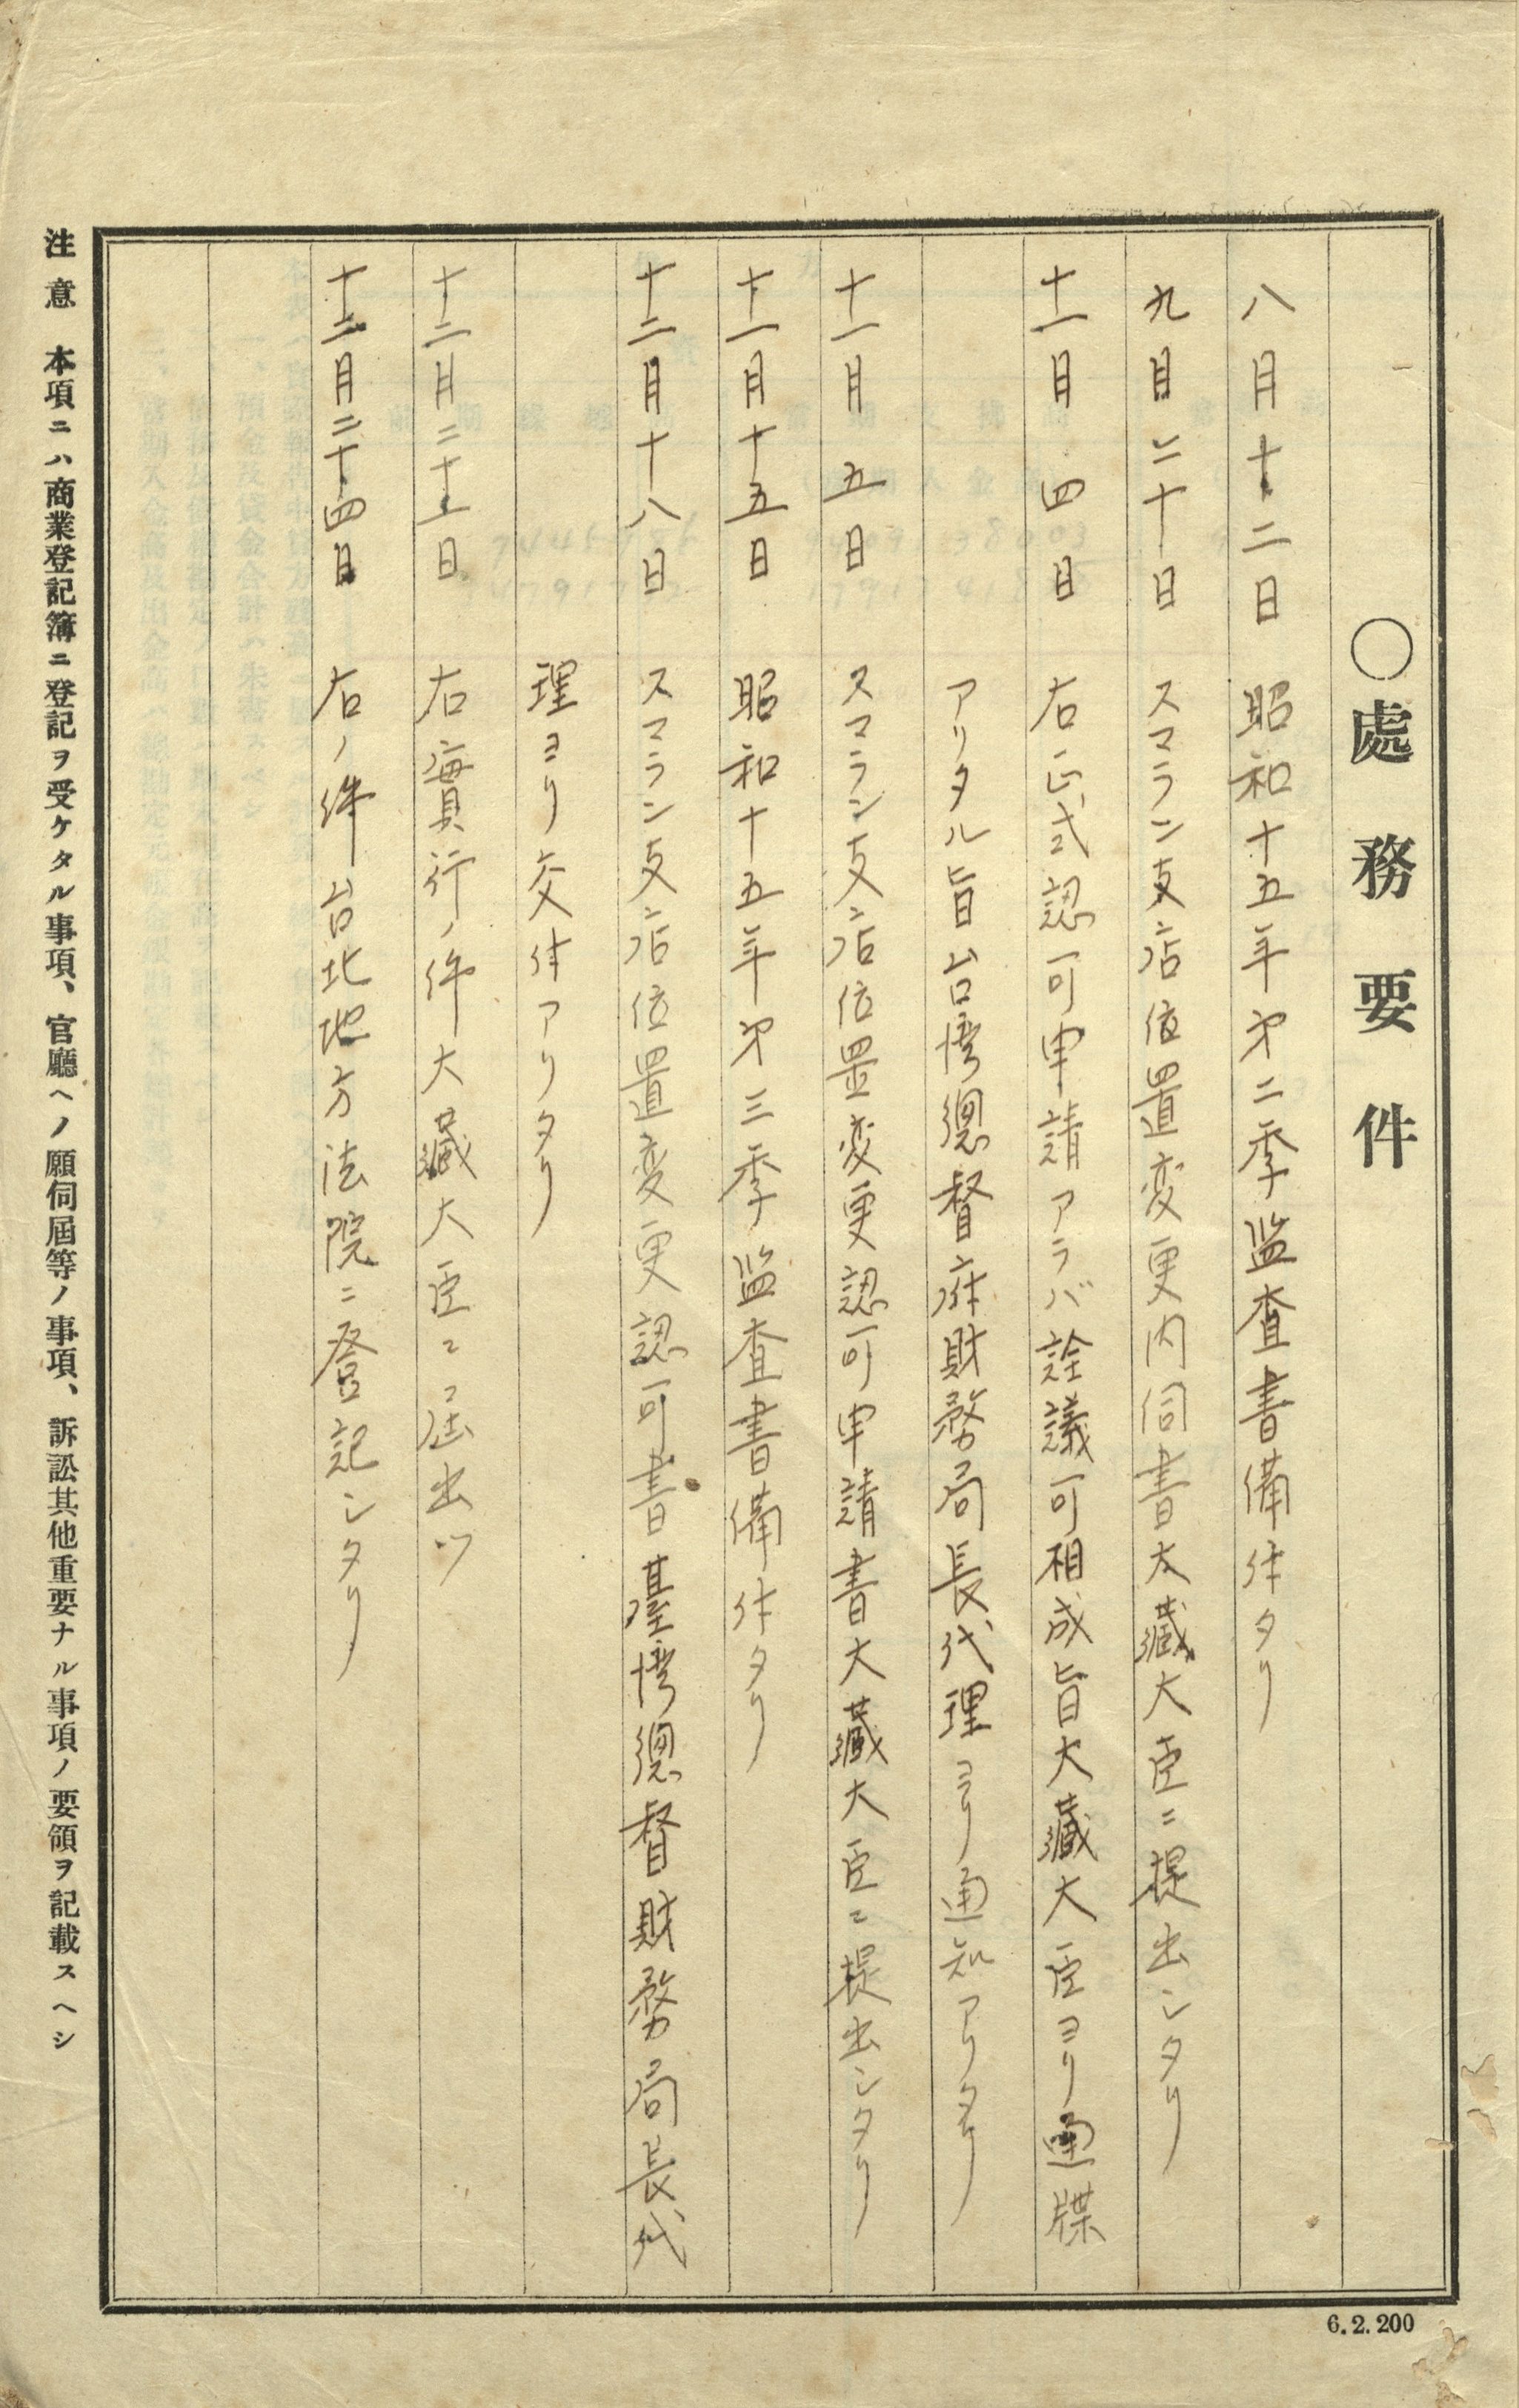 〇處務要件
八月十二日 昭和十五年第二季監査書備付タリ
九月二十日 スマラン支店位置変更内伺書大藏大臣ニ提出シタリ
十一月四日 右正式認可申請アラバ詮議可相成旨大藏大臣ヨリ通牒
アリタル旨台湾總督府財務局長代理ヨリ通知アリタリ
十一月五日 スマラン支店位置変更認可申請書大藏大臣ニ提出シタリ
十一月十五日 昭和十五年第三季監査書備付タリ
十二月十八日 スマラン支店位置変更認可書臺湾總督財務局長代
理ヨリ交付アリタリ
十二月二十三日 右實行ノ件大藏大臣ニ届出ツ
十二月二十四日 右ノ件台北地方法院ニ登記シタリ
注意 本項ニハ商業登記簿ニ登記ヲ受ケタル事項、官廳ヘノ願伺屆等ノ事項、訴訟其他重要ナル事項ノ要領ヲ記載スヘシ
6.2.200